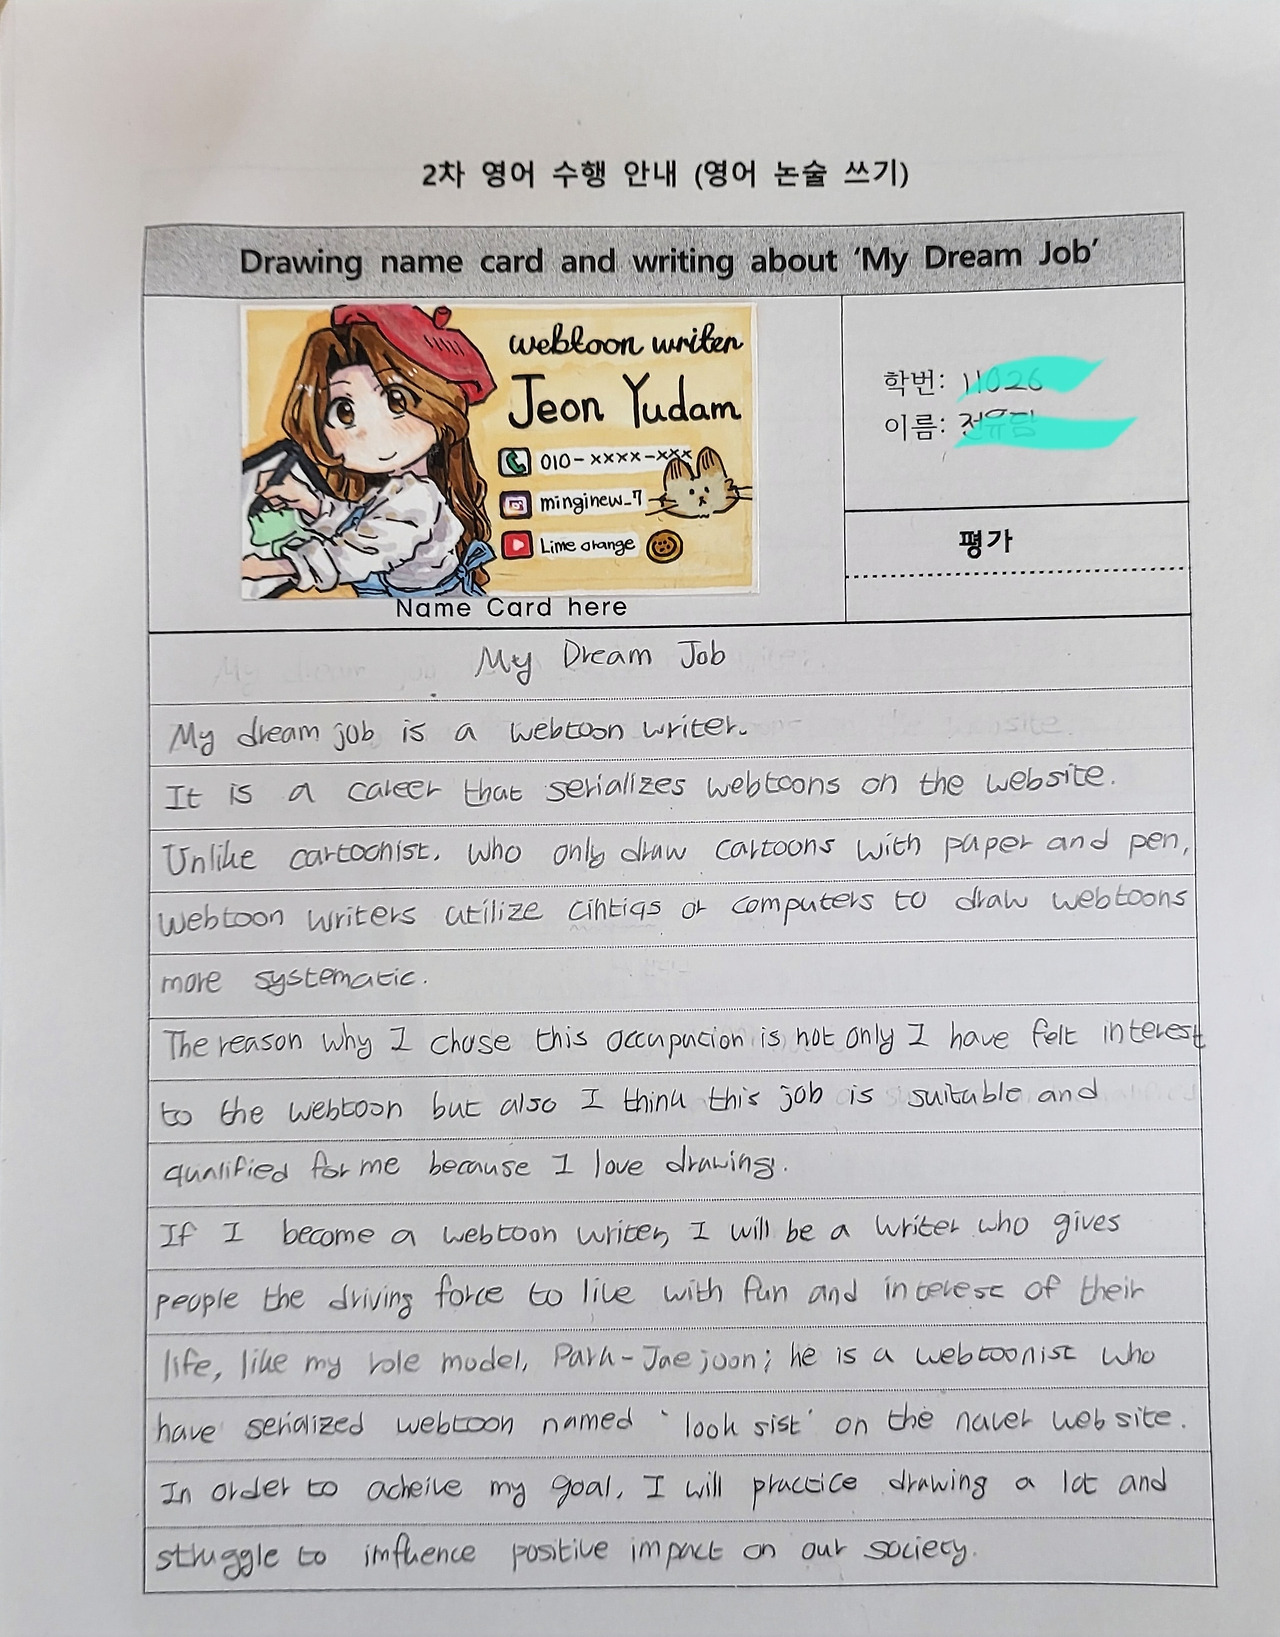 2차 영어 수행 안내 (영어 논술 쓰기)
Drawing name card and writing about ‘My Dream Job’
webtoon writer
Jeon Yudam
010-xxxx-xxx
minginew_7
Lime orange
Name Card here
학번: 11026
이름: 전유담
평가
My Dream Job
My dream job is a webtoon writer.
It is a career that serializes webtoons on the website.
Unlike cartoonist, who only draw cartoons with paper and pen,
webtoon writers utilize cintiqs or computers to draw webtoons
more systematic.
The reason why I chose this occupation is not only I have felt interest
to the webtoon but also I think this job is suitable and
qualified for me because I love drawing.
If I become a webtoon writer, I will be a writer who gives
people the driving force to live with fun and interest of their
life, like my role model, Park-Jae joon; he is a webtoonist who
have serialized webtoon named 'look sist' on the naver web site.
In order to acheive my goal, I will practice drawing a lot and
struggle to imfluence positive impact on our society.